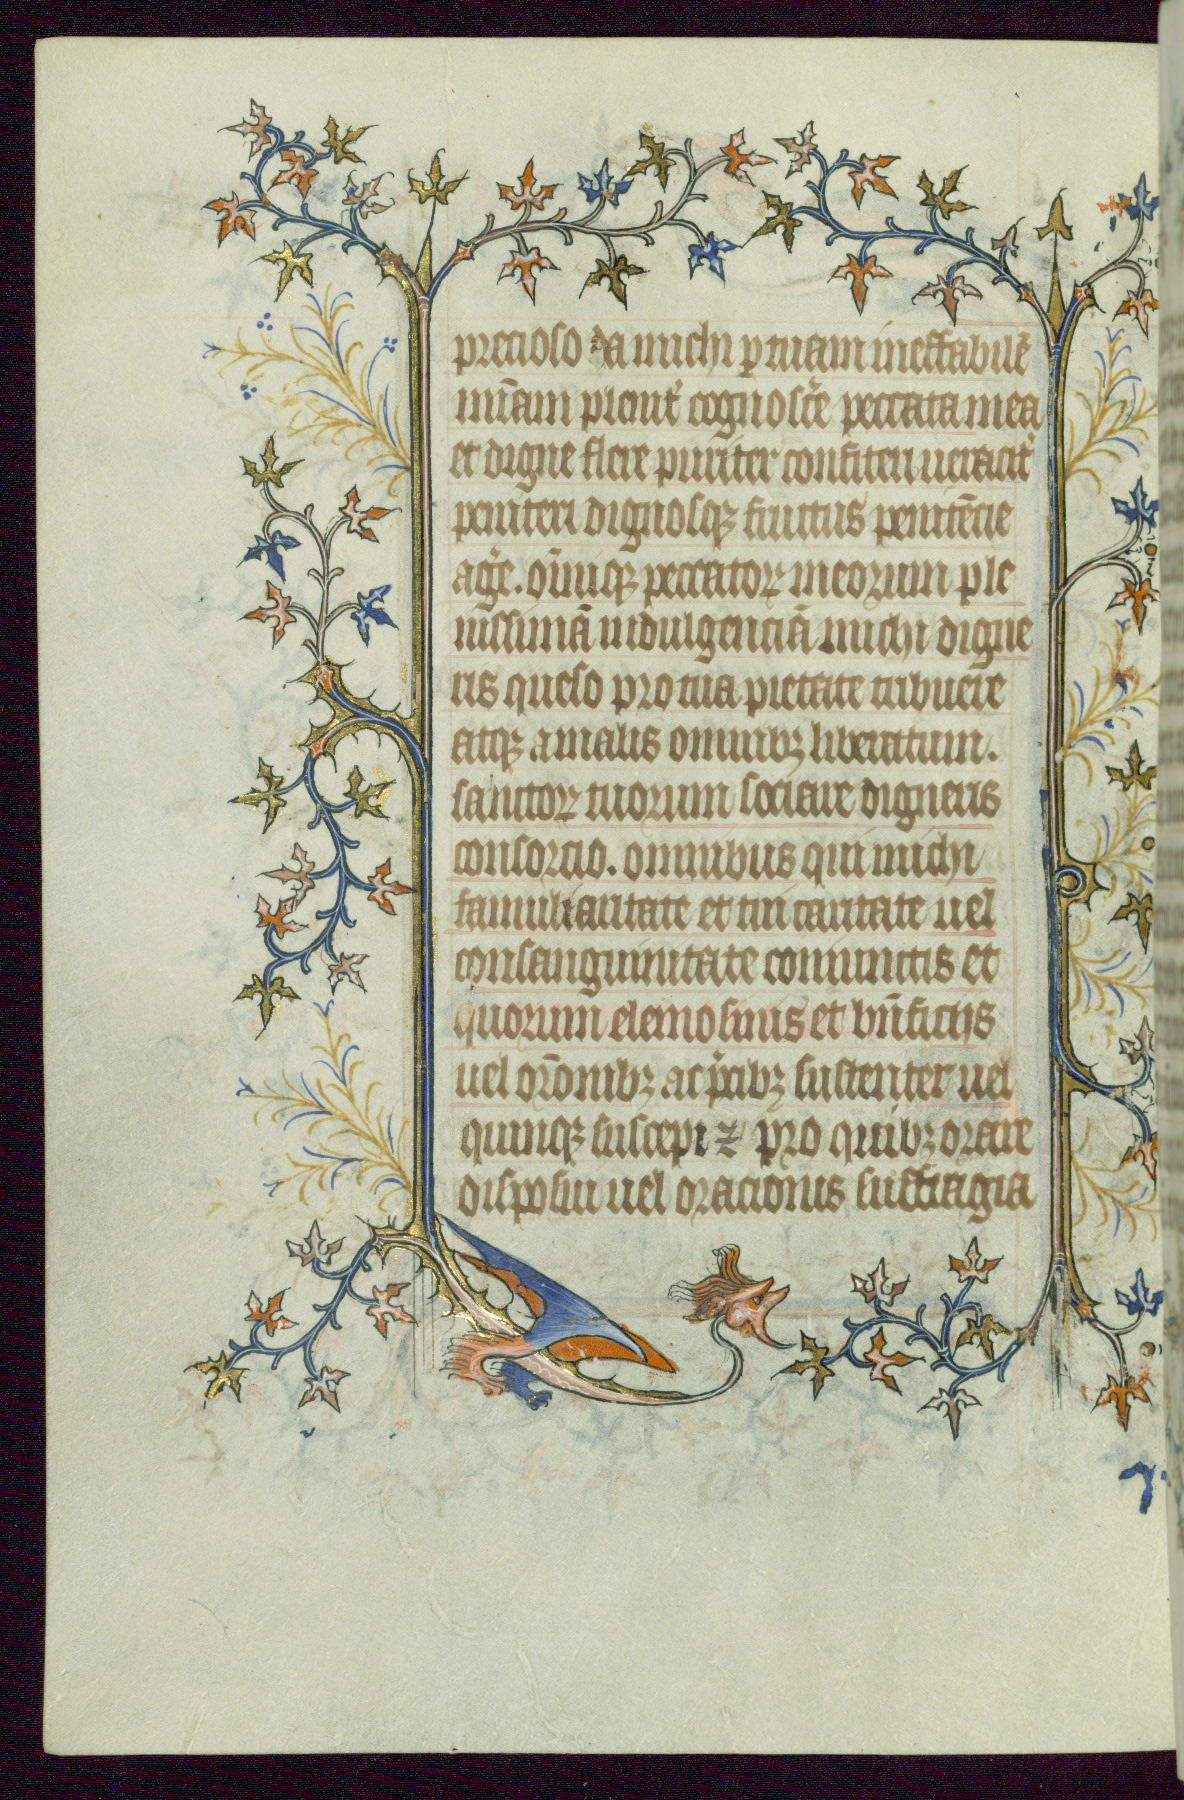 precioso da michi ꝑ tuam ineffabilē
mīam pleniť cognoscẽ peccata mea
et digne flere puriter confiteri ueraciť
peniteri dignosqꝫ fructus penitēcie
agẽ. oīuiqꝫ peccatoꝝ meorum ple
nissimā indulgenciā michi digne
ris queso pro tua pietate tribuere
atqꝫ a malis omnibꝫ liberatum.
sanctoꝝ tuorum sociare digneris
consorcio. omnibus qui michi
familiaritate et tui caritate uel
consanguinitate coniunctis et
quorum elemosinis et bn̄ficiis
uel or̄onibꝫ ac p̄cibꝫ sustenter uel
quiuqꝫ suscepi ⁊ pro quibꝫ orare
disposui uel oracionis suffragia